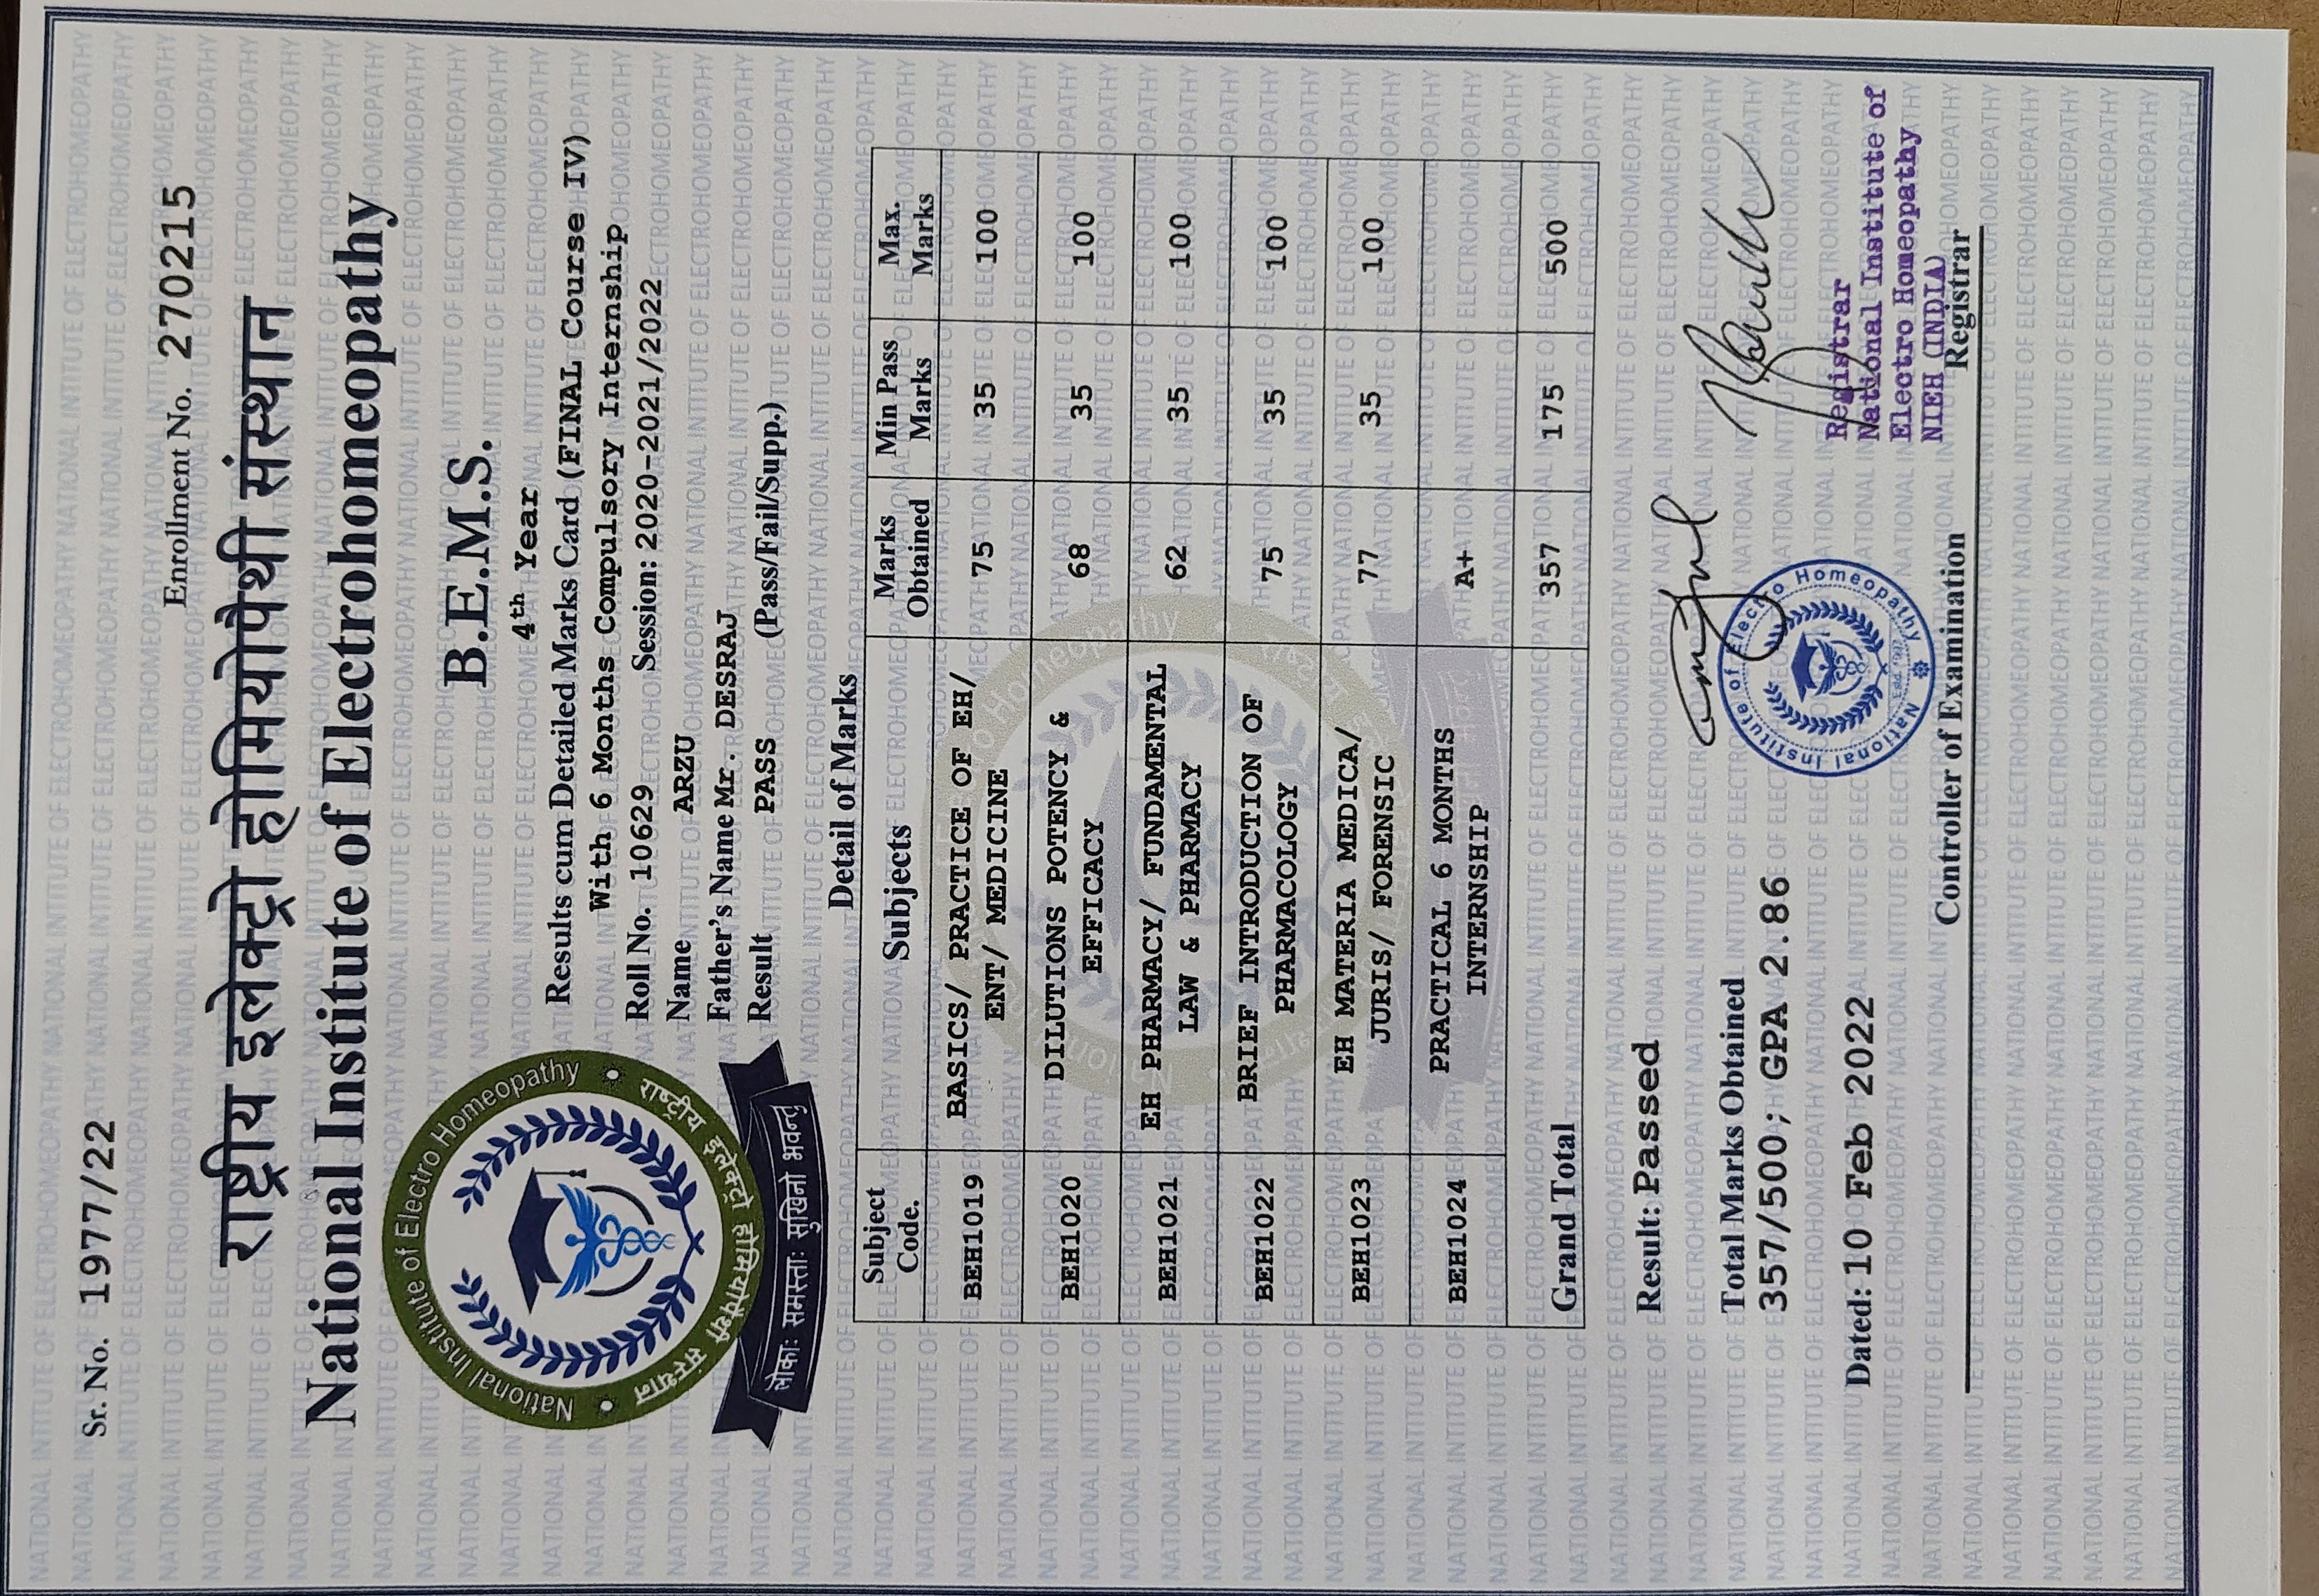 Sr. No. 1977/22
Enrollment No. 270215
राष्ट्रीय इलेक्ट्रो होमियोपैथी संस्थान
National Institute of Electrohomeopathy
National Institute of Electro Homeopathy
राष्ट्रीय इलेक्ट्रो होमियोपैथी संस्थान
लोकाः समस्ताः सुखिनो भवन्तु
B.E.M.S.
4th Year
Results cum Detailed Marks Card (FINAL Course IV)
With 6 Months Compulsory Internship
Roll No. 10629 Session: 2020-2021/2022
Name ARZU
Father's Name Mr. DESRAJ
Result PASS (Pass/Fail/Supp.)
Detail of Marks
Subject Code. Subjects Marks Obtained Min Pass Marks Max. Marks
BEH1019 BASICS/ PRACTICE OF EH/ ENT/ MEDICINE 75 35 100
BEH1020 DILUTIONS POTENCY & EFFICACY 68 35 100
BEH1021 EH PHARMACY/ FUNDAMENTAL LAW & PHARMACY 62 35 100
BEH1022 BRIEF INTRODUCTION OF PHARMACOLOGY 75 35 100
BEH1023 EH MATERIA MEDICA/ JURIS/ FORENSIC 77 35 100
BEH1024 PRACTICAL 6 MONTHS INTERNSHIP A+
Grand Total 357 175 500
Result: Passed
Total Marks Obtained
357/500; GPA 2.86
Dated: 10 Feb 2022
National Institute of Electro Homeopathy
Estd.
Controller of Examination
Registrar
National Institute of
Electro Homeopathy
NIEH (INDIA)
Registrar
NATIONAL INTITUTE OF ELECTROHOMEOPATHY